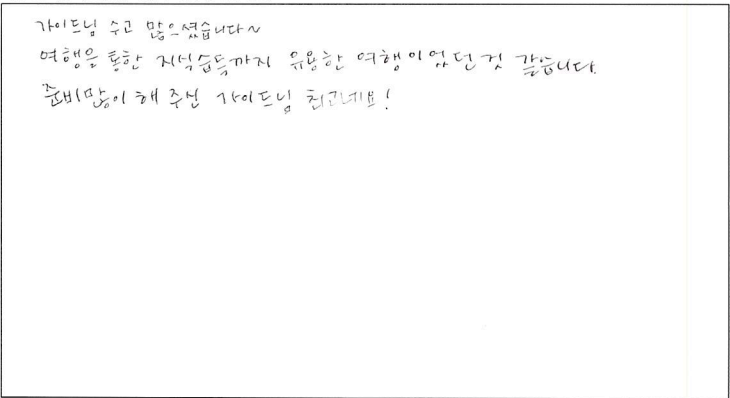 가이드님 수고 많으셨습니다~
여행을 통한 지식습득까지 유용한 여행이었던것 같습니다.
준비많이 해 주신 가이드님 최고네요!